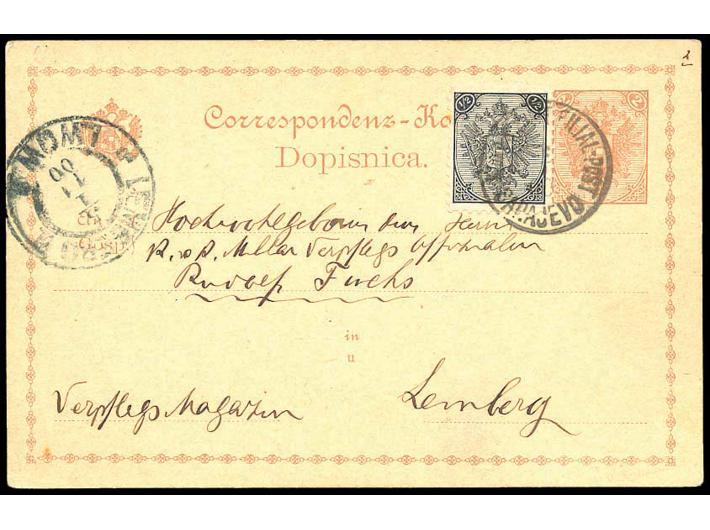 1
Correspondenz-Ka
Dopisnica.
1/2 1/2
2 2
FILIAL-POST
SARAJEVO
LWÓW
00
Hochwohlgeboren den Herrn
K. u. K. Militär Verpflegs Offizialen
Rudolf Fuchs
in
u
Verpflegs Magazin
Lemberg